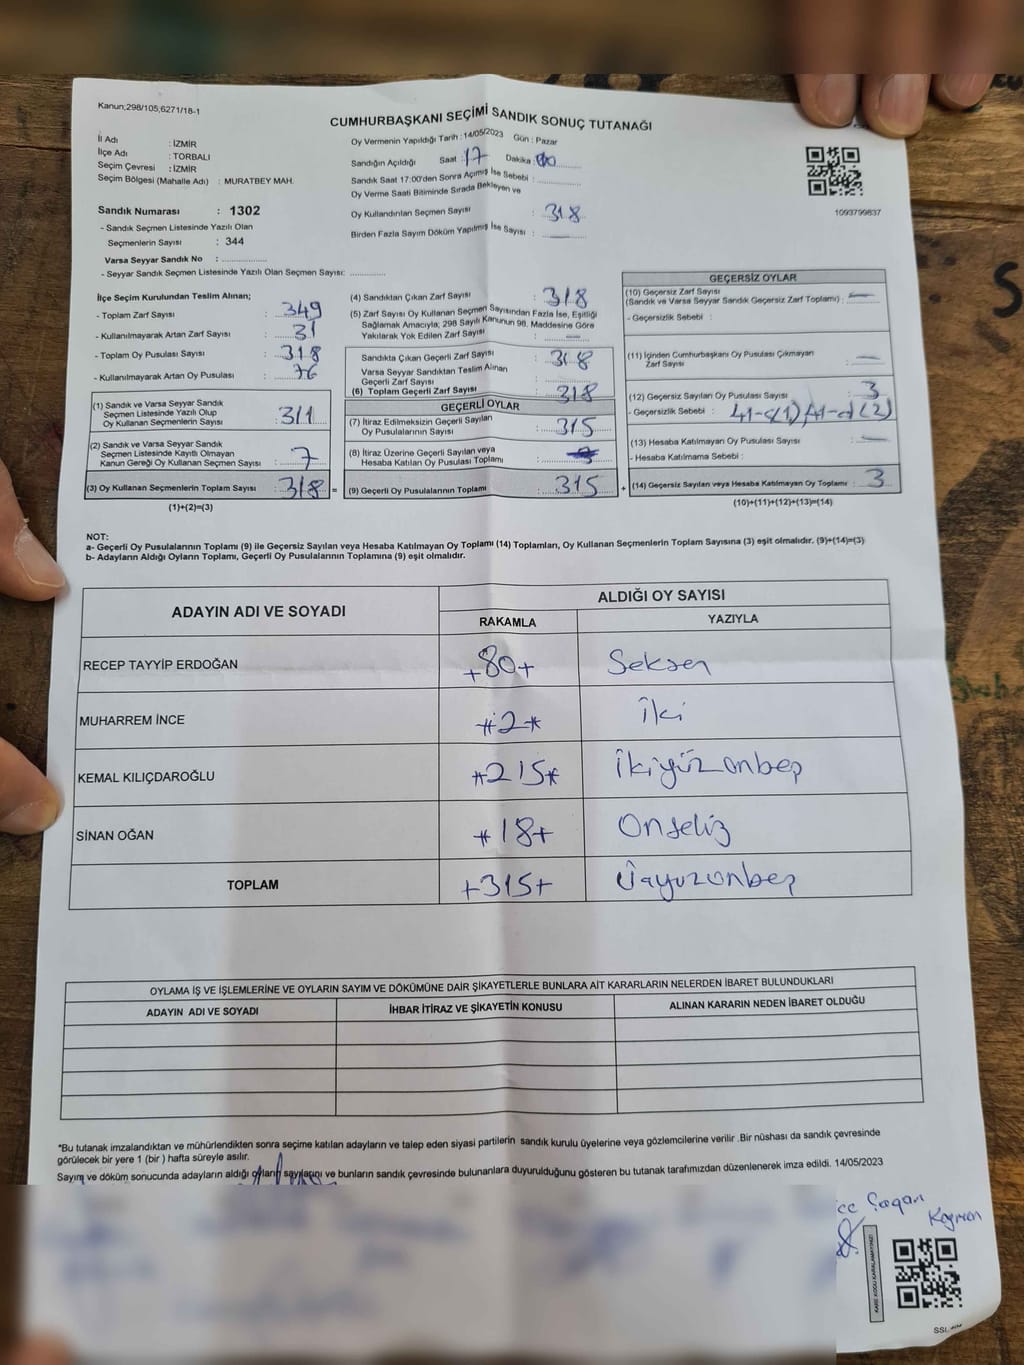 Kanun:298/105,6271/18-1
CUMHURBAŞKANI SEÇİMİ SANDIK SONUÇ TUTANAĞI
İl Adı : İZMİR
İlçe Adı : TORBALI
Seçim Çevresi : İZMİR
Seçim Bölgesi (Mahalle Adı) : MURATBEY MAH.
Oy Vermenin Yapıldığı Tarih : 14/05/2023 Gün : Pazar
Sandığın Açıldığı Saat : 17 Dakika : 00
Sandık Saat 17:00'den Sonra Açımış İse Sebebi :
Oy Verme Saati Bitiminde Sırada Bekleyen ve
Oy Kullandırılan Seçmen Sayısı : 318
Birden Fazla Sayım Döküm Yapılmış İse Sayısı :
1093799837
Sandık Numarası : 1302
- Sandık Seçmen Listesinde Yazılı Olan
Seçmenlerin Sayısı : 344
Varsa Seyyar Sandık No :
- Seyyar Sandık Seçmen Listesinde Yazılı Olan Seçmen Sayısı:
İlçe Seçim Kurulundan Teslim Alınan;
- Toplam Zarf Sayısı : 349
- Kullanılmayarak Artan Zarf Sayısı : 31
- Toplam Oy Pusulası Sayısı : 318
- Kullanılmayarak Artan Oy Pusulası : 76
(1) Sandık ve Varsa Seyyar Sandık
Seçmen Listesinde Yazılı Olup
Oy Kullanan Seçmenlerin Sayısı : 311
(2) Sandık ve Varsa Seyyar Sandık
Seçmen Listesinde Kayıtlı Olmayan
Kanun Gereği Oy Kullanan Seçmen Sayısı : 7
(3) Oy Kullanan Seçmenlerin Toplam Sayısı : 318 =
(1)+(2)=(3)
(4) Sandıktan Çıkan Zarf Sayısı : 318
(5) Zarf Sayısı Oy Kullanan Seçmen Sayısından Fazla İse, Eşitliği
Sağlamak Amacıyla; 298 Sayılı Kanunun 98. Maddesine Göre
Yakılarak Yok Edilen Zarf Sayısı : —
Sandıkta Çıkan Geçerli Zarf Sayısı : 318
Varsa Seyyar Sandıktan Teslim Alınan
Geçerli Zarf Sayısı :
(6) Toplam Geçerli Zarf Sayısı : 318
GEÇERLİ OYLAR
(7) İtiraz Edilmeksizin Geçerli Sayılan
Oy Pusulalarının Sayısı : 315
(8) İtiraz Üzerine Geçerli Sayılan veya
Hesaba Katılan Oy Pusulası Toplamı :
(9) Geçerli Oy Pusulalarının Toplamı : 315 +
GEÇERSİZ OYLAR
(10) Geçersiz Zarf Sayısı
(Sandık ve Varsa Seyyar Sandık Geçersiz Zarf Toplamı) : —
- Geçersizlik Sebebi :
(11) İçinden Cumhurbaşkanı Oy Pusulası Çıkmayan
Zarf Sayısı : —
(12) Geçersiz Sayılan Oy Pusulası Sayısı : 3
- Geçersizlik Sebebi :
(13) Hesaba Katılmayan Oy Pusulası Sayısı : —
- Hesaba Katılmama Sebebi :
(14) Geçersiz Sayılan veya Hesaba Katılmayan Oy Toplamı : 3
(10)+(11)+(12)+(13)=(14)
NOT:
a- Geçerli Oy Pusulalarının Toplamı (9) ile Geçersiz Sayılan veya Hesaba Katılmayan Oy Toplamı (14) Toplamları, Oy Kullanan Seçmenlerin Toplam Sayısına (3) eşit olmalıdır. (9)+(14)=(3)
b- Adayların Aldığı Oyların Toplamı, Geçerli Oy Pusulalarının Toplamına (9) eşit olmalıdır.
ADAYIN ADI VE SOYADI
ALDIĞI OY SAYISI
RAKAMLA YAZIYLA
RECEP TAYYİP ERDOĞAN +80+ Seksen
MUHARREM İNCE *2* İki
KEMAL KILIÇDAROĞLU *215* İkiyüzonbeş
SİNAN OĞAN *18+ Onsekiz
TOPLAM +315+ Üçyüzonbeş
OYLAMA İŞ VE İŞLEMLERİNE VE OYLARIN SAYIM VE DÖKÜMÜNE DAİR ŞİKAYETLERLE BUNLARA AİT KARARLARIN NELERDEN İBARET BULUNDUKLARI
ADAYIN ADI VE SOYADI İHBAR İTİRAZ VE ŞİKAYETİN KONUSU ALINAN KARARIN NEDEN İBARET OLDUĞU
*Bu tutanak imzalandıktan ve mühürlendikten sonra seçime katılan adayların ve talep eden siyasi partilerin sandık kurulu üyelerine veya gözlemcilerine verilir .Bir nüshası da sandık çevresinde
görülecek bir yere 1 (bir ) hafta süreyle asılır.
Sayım ve döküm sonucunda adayların aldığı oyların sayılarını ve bunların sandık çevresinde bulunanlara duyurulduğunu gösteren bu tutanak tarafımızdan düzenlenerek imza edildi. 14/05/2023
KARE KODU KARALAMAYINIZ!